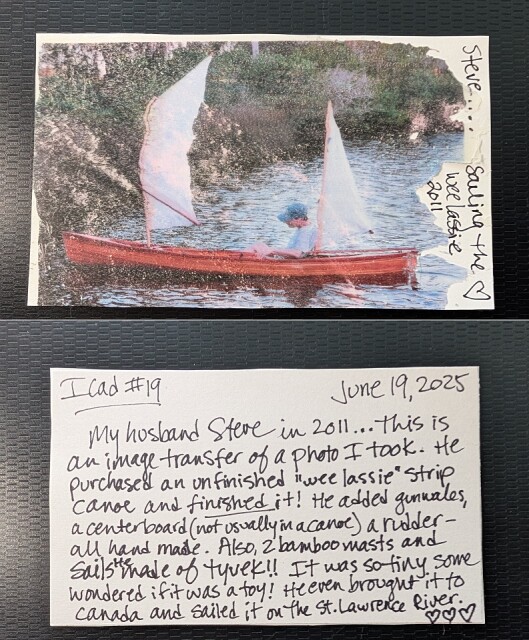 Steve.... Sailing the
wee lassie ♡
2011
Icad #19
June 19, 2025
My husband Steve in 2011...This is
an image transfer of a photo I took. He
purchased an unfinished "wee lassie" strip
canoe and finished it! He added gunwales,
a centerboard (not usually in a canoe) a rudder-
all hand made. Also, 2 bamboo masts and
sails he made of tyvek!! It was so tiny, some
wondered if it was a toy! He even brought it to
Canada and sailed it on the St. Lawrence River.
♡♡♡